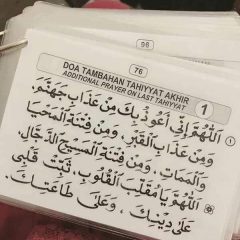 96
76
DOA TAMBAHAN TAHIYYAT AKHIR
ADDITIONAL PRAYER ON LAST TAHIYYAT
1
اَللّٰهُمَّ إِنِّي أَعُوْذُ بِكَ مِنْ عَذَابِ جَهَنَّمَ،
وَمِنْ عَذَابِ الْقَبْرِ، وَمِنْ فِتْنَةِ الْمَحْيَا
وَالْمَمَاتِ، وَمِنْ فِتْنَةِ الْمَسِيْحِ الدَّجَّالِ.
اَللّٰهُمَّ يَا مُقَلِّبَ الْقُلُوْبِ، ثَبِّتْ قَلْبِيْ
عَلَى دِيْنِكَ، وَعَلَى طَاعَتِكَ.